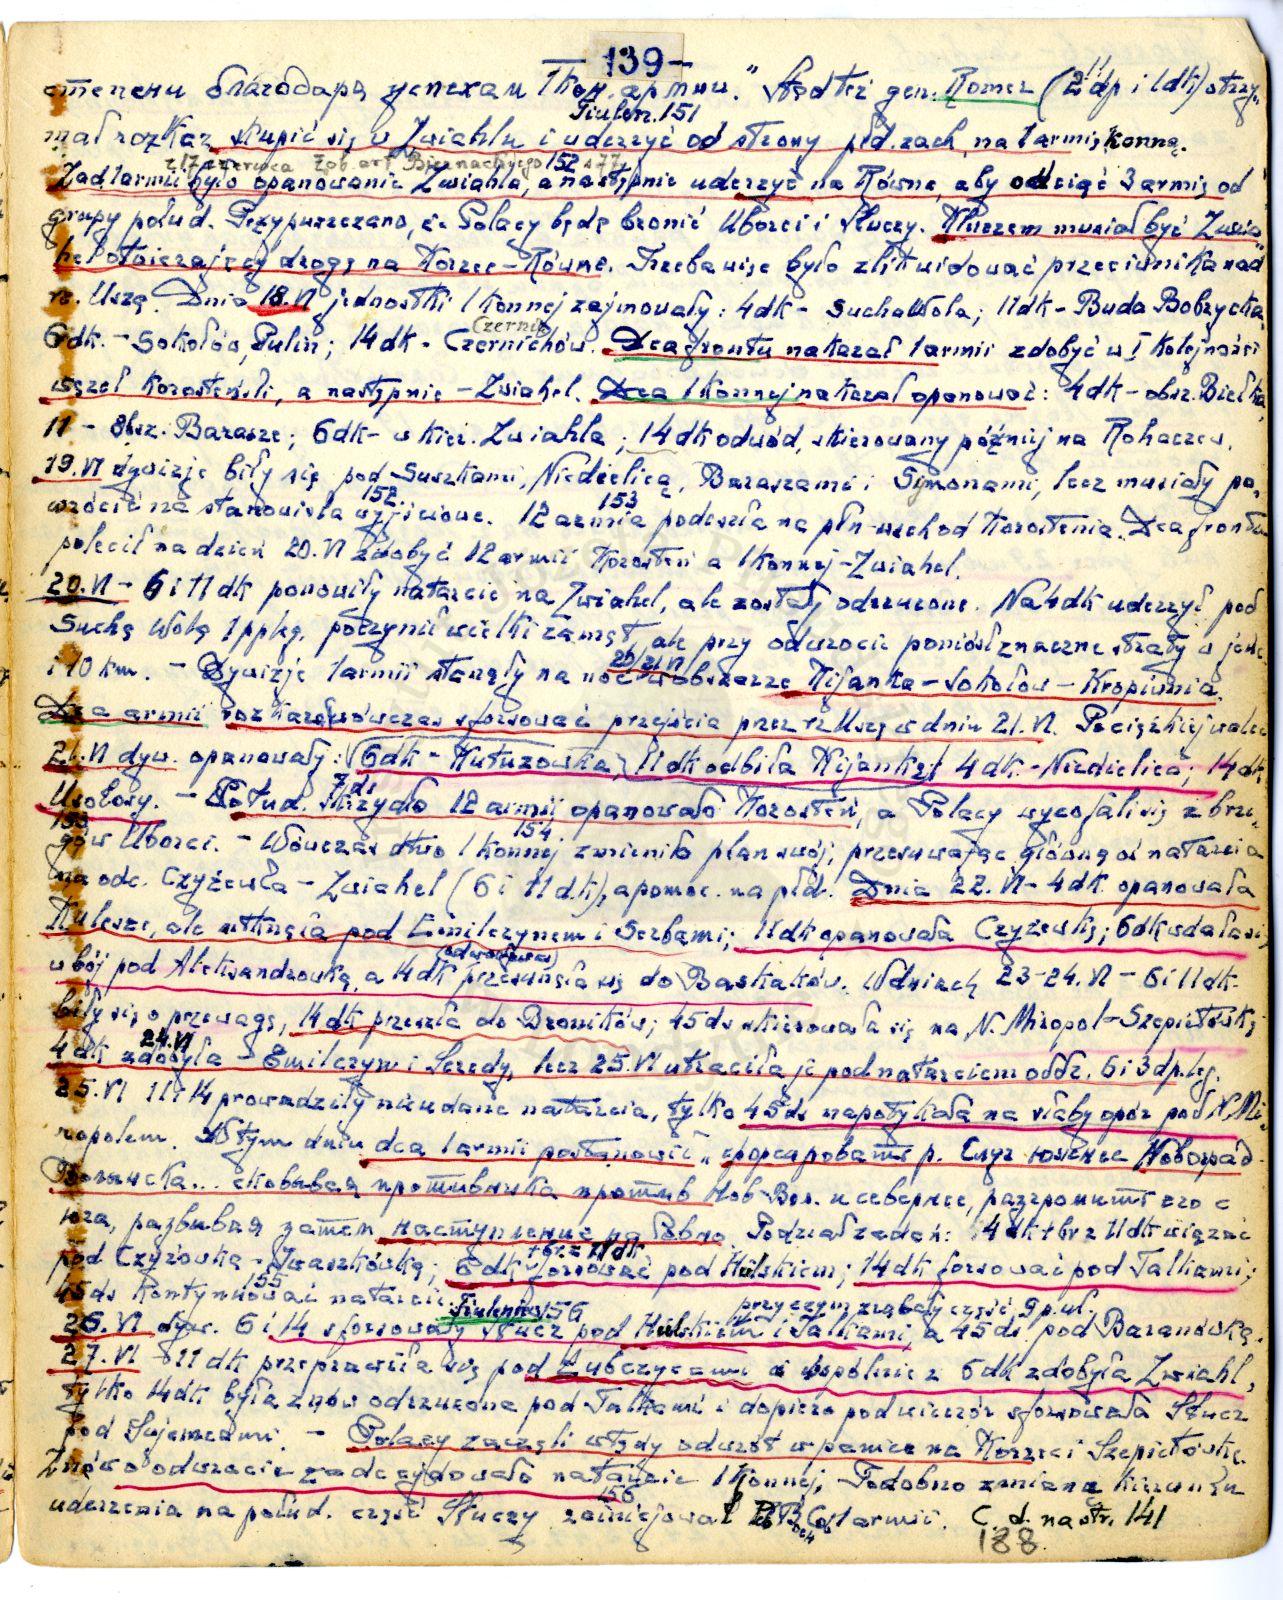 — 139 —
степени благодаря успехам 1 Кон. армии." Stąd też gen. Romer (2 dp i 1 dk) otrzy-
Tiulen. 151
mał rozkaz skupić się w Zwiahlu i uderzyć od strony płd. zach. na 1 armię konną.
z 17 czerwca Zob. art. Biernackiego 152 s 77
Zad. 1 armii było opanowanie Zwiahla, a następnie uderzyć na Równe, aby odciąć 3 armię od
grupy połud. Przypuszczano, że Polacy będą bronić Uborci i Słuczy. Kluczem musiał być Zwia-
hel otwierający drogę na Korzec – Równe. Trzeba więc było zlikwidować przeciwnika nad
rz. Uszą. Dnia 18.VI jednostki 1 konnej zajmowały: 4 dk – Sucha Wola; 11 dk – Buda Bobrycka,
6 dk. – Sokołów, Pulin; 14 dk – Czernichów. Dca frontu nakazał 1 armii zdobyć w I kolejności
węzeł korosteński, a następnie – Zwiahel. Dca 1 konnej nakazał opanować: 4 dk – obsz. Bielka,
11 – obsz. Barasze; 6 dk – w kier. Zwiahla; 14 dk odwód, skierowany później na Rohaczew.
19.VI dywizje biły się pod Suszkami, Niedielicą, Baraszami i Symonami, lecz musiały po-
152 153
wrócić na stanowiska wyjściowe. 12 armia podeszła na płn-wsch od Korostenia. Dca frontu
polecił na dzień 20.VI zdobyć 12 armii Korosteń a 1 konnej – Zwiahel.
20.VI – 6 i 11 dk ponowiły natarcie na Zwiahel, ale zostały odrzucone. Na 4 dk uderzył pod
Suchą Wolą 1 ppleg, poczynił wielki zamęt, ale przy odwrocie poniósł znaczne straty w
i 10 km. – Dywizje 1 armii stanęły na noc 20/21.VI w obszarze Kijanka – Sokołów – Kropiwnia.
Dca armii rozkazał wówczas sforsować przejścia przez rz Uszę w dniu 21.VI. Po ciężkiej walce
21.VI dyw. opanowały: 6 dk – Kutuzowka, 11 dk odbiła Kijankę; 4 dk. – Niedielica; 14 dk
Usołosy. – Połud. skrzydło 12 armii opanowało Korosteń, a Polacy wycofali się z brze-
153 154
gów Uborci. – Wówczas dtwo 1 konnej zmieniło plan swój, przesuwając główną oś natarcia
na odc. Czyżewka – Zwiahel (6 i 11 dk), a pomoc. na płd. Dnia 22.VI – 4 dk. opanowała
Kulesze, ale utknęła pod Emilczynem i Serbami; 11 dk opanowała Czyżewkę; 6 dk wdała się
w bój pod Aleksandrowką, a 14 dk (odwodowa) przesunęła się do Baskaków. W dniach 23-24.VI – 6 i 11 dk
biły się o przewagę, 14 dk przeszła do Broników; 45 ds skierowała się na N. Miropol – Szepietówkę
4 dk 24.VI zdobyła Emilczyn i Seredy, lecz 25.VI utraciła je pod natarciem oddz. 6 i 3 dp. leg.
25.VI 11 i 14 prowadziły nieudane natarcia, tylko 45 ds napotykała na słaby opór pod N. Mi-
ropolem. W tym dniu dca 1 armii postanowił „форсировать р. Случ южнее Новоград-
Волынска... сковывая противника против Нов-Вол. и севернее, разгромить его с
юга, развивая затем наступление на Ровно. Podział zadań: 4 dk + br z 11 dk wiązać
pod Czyżówką – Iwaszkówką; 6 dk + br z 11 dk forsować pod Hulskiem; 14 dk forsować pod Talkami;
45 ds kontynuować natarcie. 155
Tiuleniew 156 przy czym zrąbały część 9 p. uł.
26.VI dyw. 6 i 14 sforsowały Słucz pod Hulskiem i Talkami, a 45 ds. pod Baranówką.
27.VI – 11 dk przeprawiła się pod Lubczycami i wspólnie z 6 dk zdobyła Zwiahl,
tylko 14 dk była znów odrzucona pod Talkami i dopiero pod wieczór sforsowała Słucz
pod Sujemcami. – Polacy zaczęli wtedy odwrót w panice na Korzec i Szepietówkę.
Znowu o odwrocie zadecydowało natarcie 1 konnej. Podobno zmianę kierunku
156
uderzenia na połud. część Słuczy zainicjował 1 armii. C. d. na str. 141
188